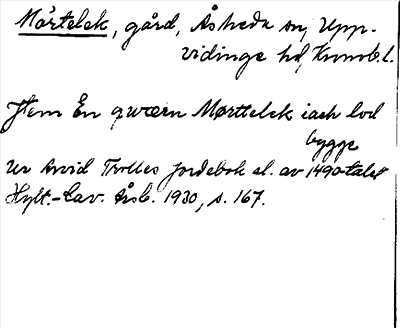 Mörtelek, gård, Åsheda sn, Upp-
vidinge hd, Kronob. l.
Item En qwærn Mørttelek iach lod
bygge
Ur Arvid Trolles jordebok sl. av 1490-talet
Hylt.-Cav. Årsb. 1930, s. 167.